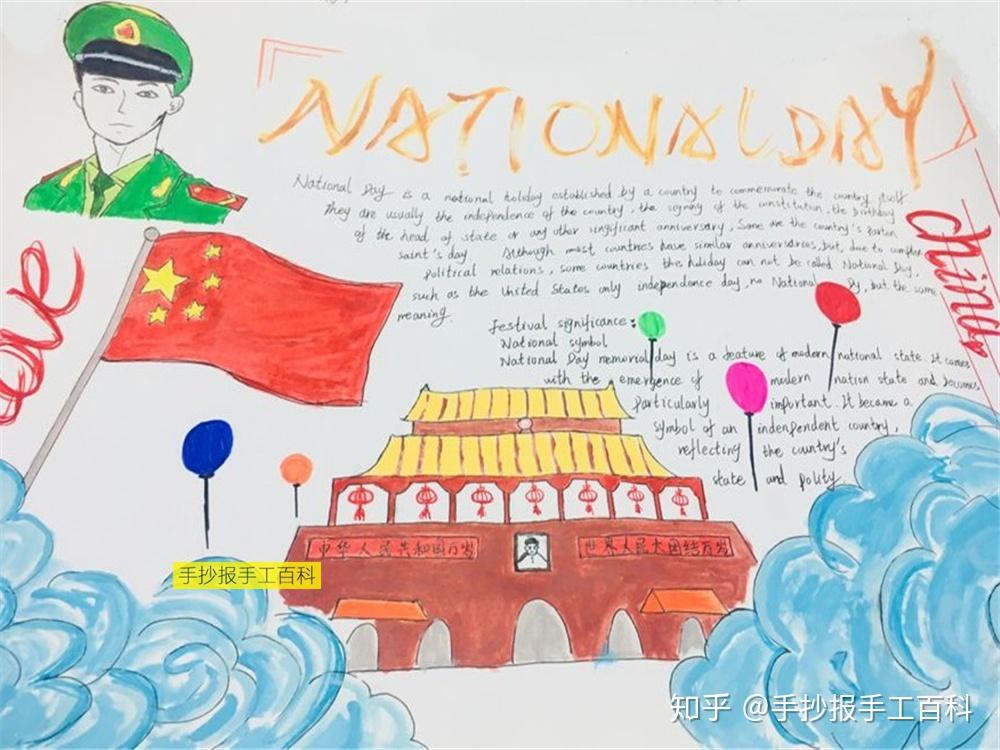 NATIONAL DAY
National Day is a national holiday established by a country to commemorate the country itself
They are usually the independence of the country, the signing of the constitution, the birthday
of the head of state or any other significant anniversary, Some are the country's
saint's day. Although most countries have similar anniversaries, but, due to complex
political relations, some countries this holiday can not be called National Day,
such as the United States only independence day, no National Dy, but the same
meaning.
Love
China
festival significance:
National symbol
National Day memorial day is a feature of modern national state. It comes
with the emergence of modern nation state and becomes
particularly important. It became a
symbol of an indenpendent country,
reflecting the country's
state and polity.
中华人民共和国万岁
世界人民大团结万岁
手抄报手工百科
知乎 @手抄报手工百科